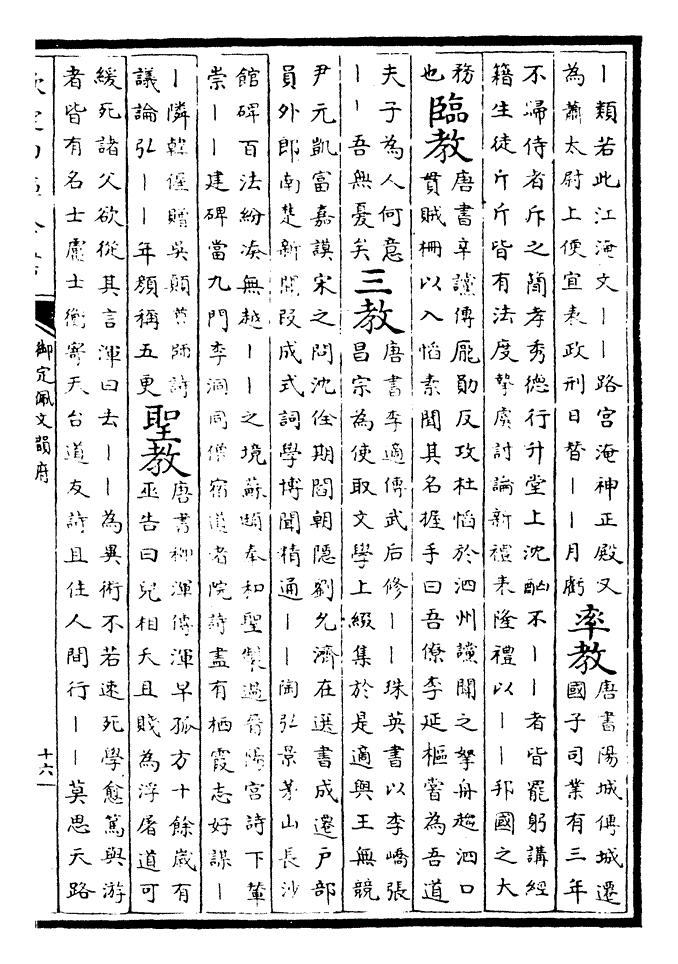 ｜類若此江淹文｜｜路宮淹神正殿又
為蕭太尉上便宜表政刑日替｜｜月虧
率教
唐書陽城傳城遷
國子司業有三年
不歸侍者斥之簡孝秀德行升堂上沈酗不｜｜者皆罷躬講經
籍生徒斤斤皆有法度摯虞討論新禮表隆禮以｜｜邦國之大
務
也
臨教
唐書辛讜傳龐勛反攻杜慆於泗州讜聞之拏舟趨泗口
貫賊柵以入慆素聞其名握手曰吾僚李延樞嘗為吾道
夫子為人何意
｜｜吾無憂矣
三教
唐書李適傳武后修｜｜珠英書以李嶠張
昌宗為使取文學士綴集於是適與王無競
尹元凱富嘉謨宋之問沈佺期閻朝隱劉允濟在選書成遷戶部
員外郎南楚新聞段成式詞學博聞精通｜｜陶弘景茅山長沙
館碑百法紛湊無越｜｜之境蘇頲奉和聖製過晉陽宮詩下輦
崇｜｜建碑當九門李洞同僧宿道者院詩盡有栖霞志好謀｜
｜隣韓偓贈吳顛尊師詩
議論弘｜｜年顏稱五更
聖教
唐書柳渾傳渾早孤方十餘歲有
巫告曰兒相夭且賤為浮屠道可
緩死諸父欲從其言渾曰去｜｜為異術不若速死學愈篤與游
者皆有名士盧士衡寄天台道友詩且住人間行｜｜莫思天路
御定佩文韻府
十六